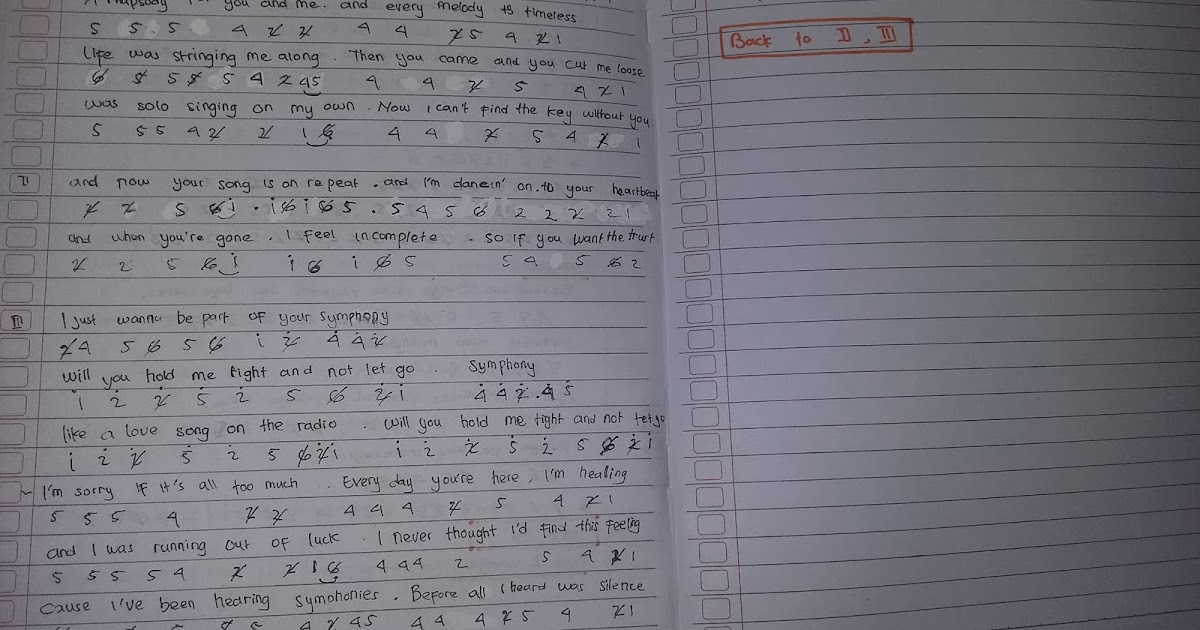 A Rhapsody for you and me. and every melody is timeless
5 5 5 4 2 2 4 4 2 5 4 2 1
Life was stringing me along. Then you came and you cut me loose
6 5 5 5 5 4 2 45 4 4 2 5 4 2 1
was solo singing on my own. Now I can't find the key without you
5 5 5 4 2 2 1 6 4 4 2 5 4 2 1
II and now your song is on repeat. and I'm dancin' on. to your heartbeat
2 2 5 6 i . i 6 i 6 5 . 5 4 5 6 2 2 2 2 1
and when you're gone. I feel incomplete. so if you want the trust
2 2 5 6 i i 6 i 6 5 5 4 5 6 2
III I just wanna be part of your symphony
2 4 5 6 5 6 i 2 4 4 2
will you hold me tight and not let go. Symphony
i 2 2 5 2 5 6 2 i 4 4 2 . 4 5
like a love song on the radio. will you hold me tight and not let go
i 2 2 5 2 5 6 2 i i 2 2 5 2 5 6 2 i
~ I'm sorry if it's all too much. Every day you're here, I'm healing
5 5 5 4 2 2 4 4 4 2 5 4 2 1
and I was running out of luck. I never thought I'd find this feelig
5 5 5 5 4 2 2 1 6 4 4 4 2 5 4 2 1
Cause I've been hearing symphonies. Before all I heard was silence
4 2 45 4 4 4 2 5 4 2 1
Back to II, III